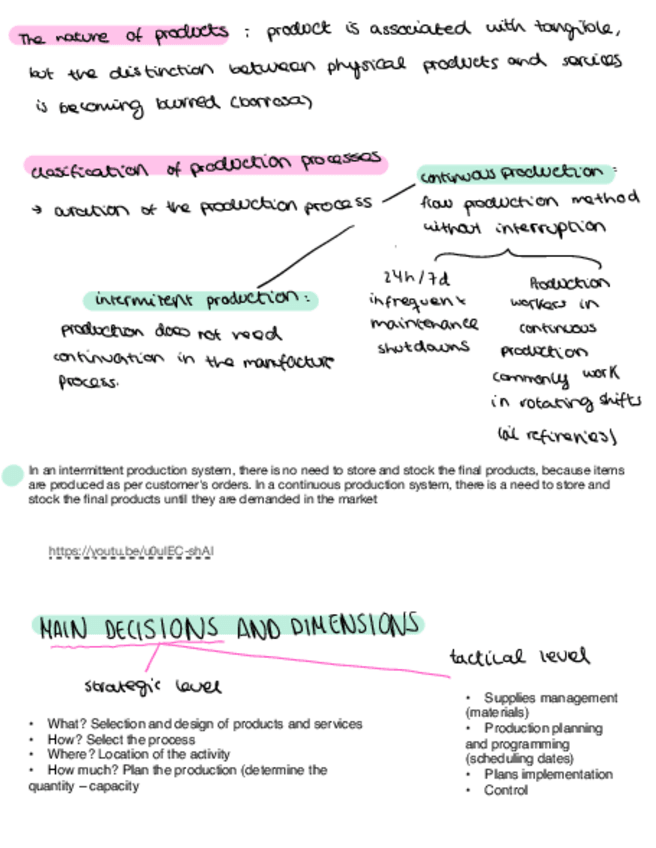 The nature of products : product is associated with tangible,
but the distinction between physical products and services
is becoming blurred (borrosa)
clasification of production processes
→ duration of the production process
continuous production:
flow production method
without interruption
24h/7d
infrequent
maintenance
shutdowns
Production
workers in
continuous
production
commonly work
in rotating shifts
(oil refineries)
intermitent production:
production does not need
continuation in the manufacture
process.
In an intermittent production system, there is no need to store and stock the final products, because items
are produced as per customer's orders. In a continuous production system, there is a need to store and
stock the final products until they are demanded in the market
https://youtu.be/u0uIEC-shAI
MAIN DECISIONS AND DIMENSIONS
strategic level
• What? Selection and design of products and services
• How? Select the process
• Where? Location of the activity
• How much? Plan the production (determine the
quantity – capacity
tactical level
• Supplies management
(materials)
• Production planning
and programming
(scheduling dates)
• Plans implementation
• Control